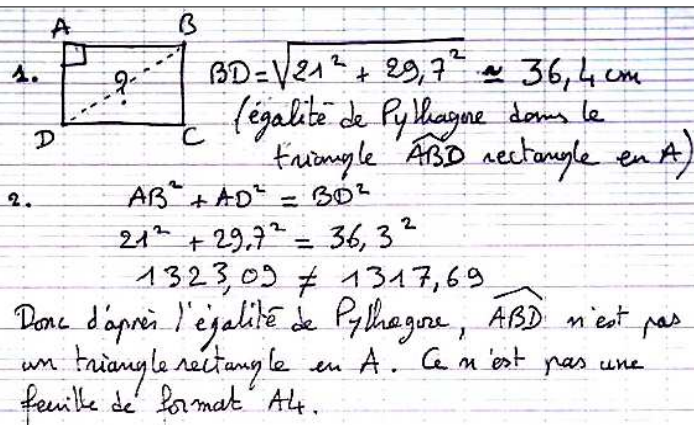 A B
1. ? BD = √21² + 29,7² ≃ 36,4 cm
D C (égalité de Pythagore dans le
triangle ABD rectangle en A)
2. AB² + AD² = BD²
21² + 29,7² = 36,3²
1323,09 ≠ 1317,69
Donc d'après l'égalité de Pythagore, ABD n'est pas
un triangle rectangle en A. Ce n'est pas une
feuille de format A4.